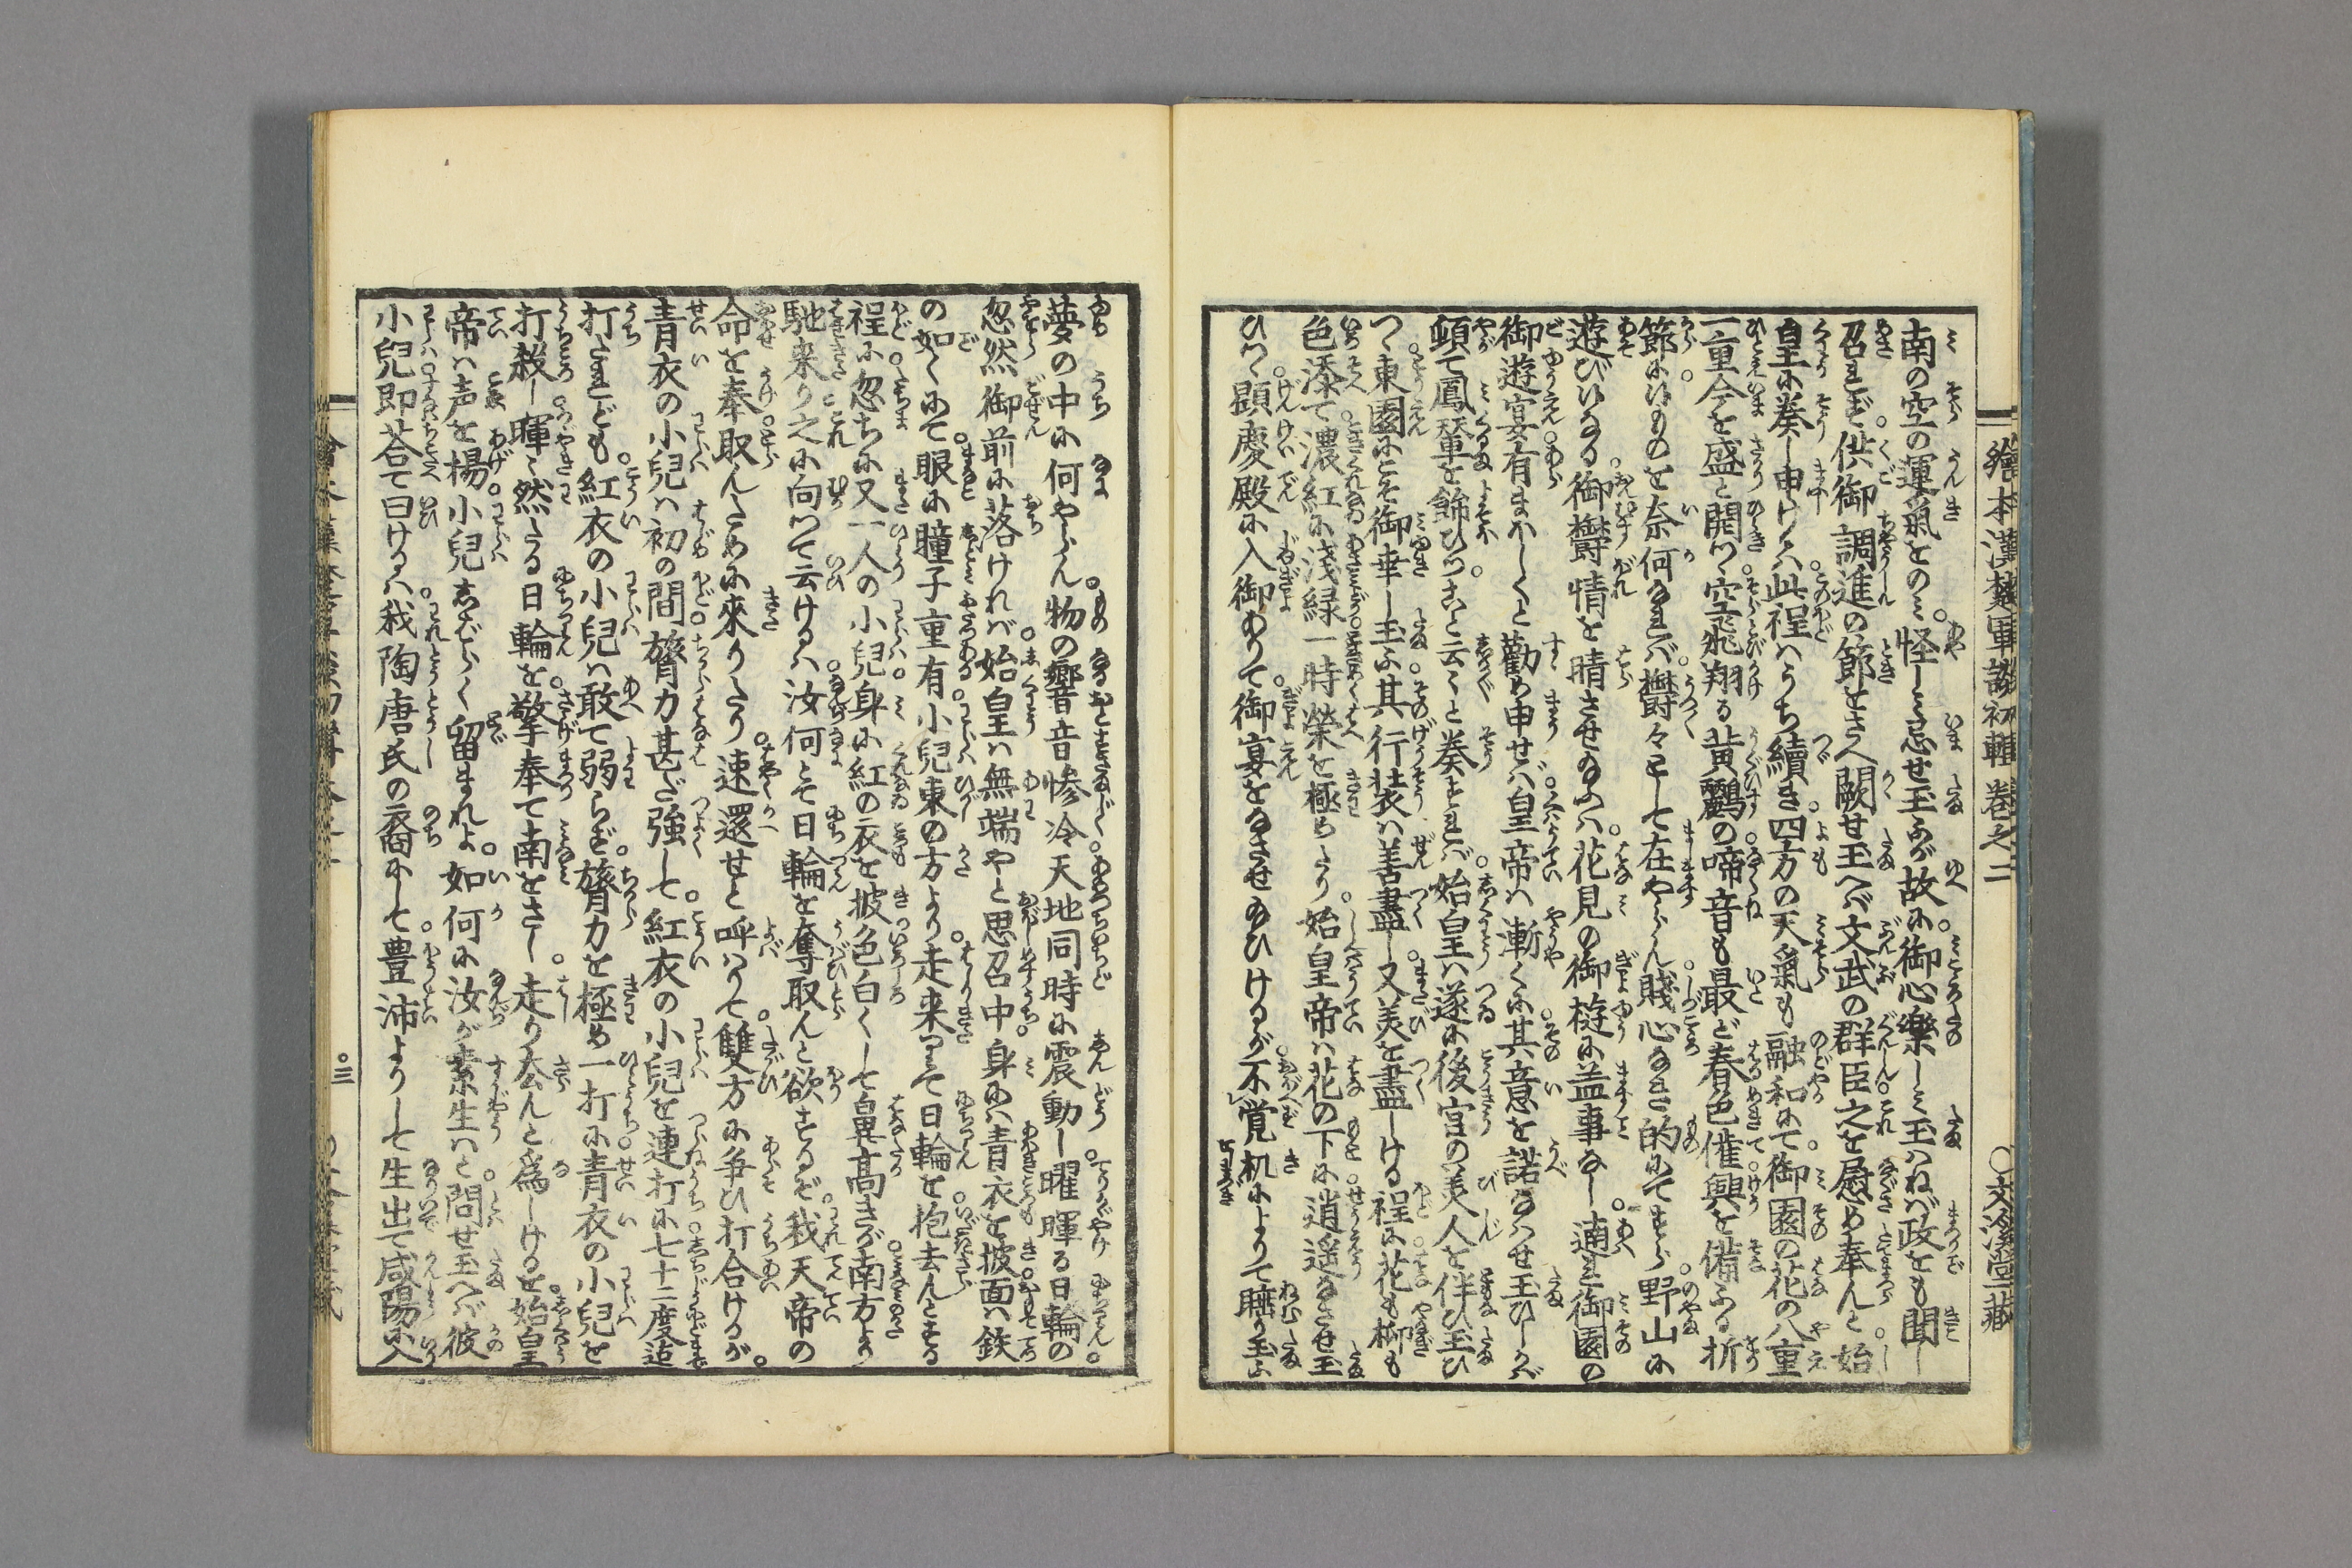 繪本漢楚軍談初輯卷之二 ○文溪堂藏
南の空の運氣をのミ怪しミ忘せ玉ふが故に御心樂しミ玉ハねバ政をも聞し
召れず供御調進の節をさへ闕せ玉へバ文武の群臣之を慰め奉んと始
皇に奏し申けるハ此程ハうち續き四方の天氣も融和にて御園の花の八重
一重今を盛と開つゝ空飛翔る黄鸝の啼音も最ど春色催興を備ふる折
節にけものを奈何なれバ欝々として在やらん賤心なき的にてすら野山に
遊びけるに御欝情を晴させ給ふハ花見の御遊に益事なし適ハ御園の
御遊宴有まほしくと勸め申せバ皇帝ハ漸くに其意を諾なハせ玉ひしかバ
頓て鳳輦を餝ひつゝ云々と奏すれバ始皇ハ遂に後宮の美人を伴ひ玉ひ
つゝ東園にこそ御幸し玉ふ其行装ハ善盡し又美を盡しける程に花も栁も
色添て濃紅に浅緑一時榮を極めたり始皇帝ハ花の下に逍遥なさせ玉
ひつゝ顕慶殿に入御ありて御宴をなさせ給ひけるが不覚机によりて睡り玉ふ
夢の中に何やらん物の響音惨冷天地同時に震動し曜暉る日輪の
忽然御前に落けれバ始皇ハ無端やと思召中身にハ青衣を披面ハ鉄
の如くにて眼に瞳子重有小兒東の方より走来りて日輪を抱去んとする
程に忽ちに又一人の小兒身に紅の衣を披色白くして鼻高きが南方より
馳来り之に向つて云けるハ汝何とて日輪を奪取んと欲するぞ我天帝の
命を奉取んために來りたり速還せと呼ハりて雙方に争ひ打合けるが
青衣の小兒ハ初の間膂力甚だ強して紅衣の小兒を連打に七十二度迄
打たれども紅衣の小兒ハ敢て弱らず膂力を極め一打に青衣の小兒を
打殺し暉々然たる日輪を擎奉て南をさし走り去んと為しけるを始皇
帝ハ声を揚小兒しばらく留まれよ如何に汝が素生ハと問せ玉へバ彼
小兒即荅て曰けるハ我陶唐氏の裔にして豊沛よりして生出て咸陽に入
○三